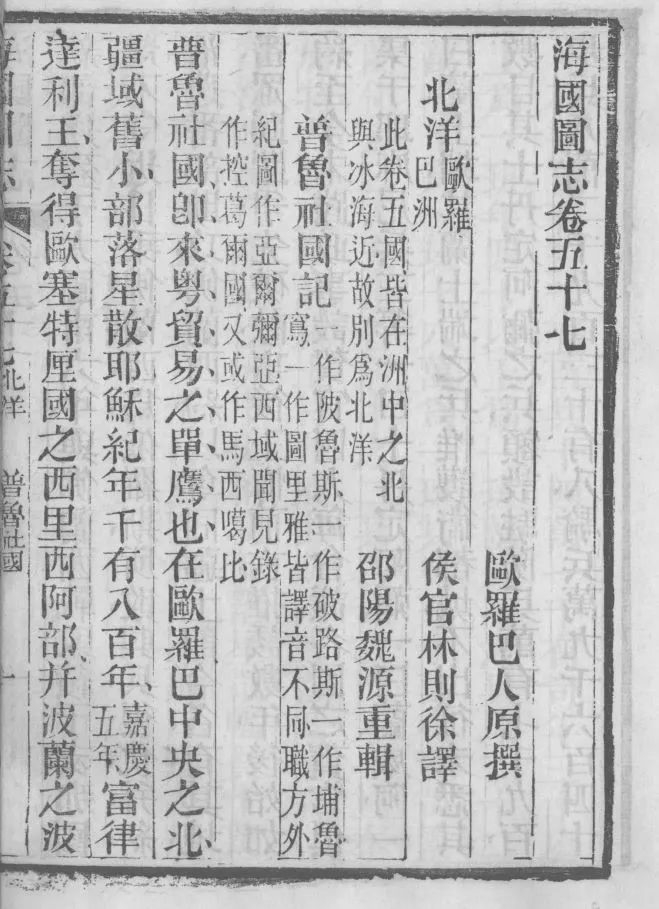 海國圖志卷五十七
歐羅巴人原撰
北洋 歐羅
巴洲
侯官林則徐譯
此卷五國皆在洲中之北
與冰海近故別爲北洋
邵陽魏源重輯
普魯社國記 一作陂魯斯一作破路斯一作埔魯
寫一作圖里雅皆譯音不同職方外
紀圖作亞爾彌亞西域聞見錄
作控葛爾國又或作馬西噶比
普魯社國卽來粵貿易之單鷹也在歐羅巴中央之北
疆域舊小部落星散耶穌紀年千有八百年 嘉慶
五年 富律
達利王奪得歐塞特厘國之西里西阿部幷波蘭之波
卷五十七 北洋 普魯社國 一